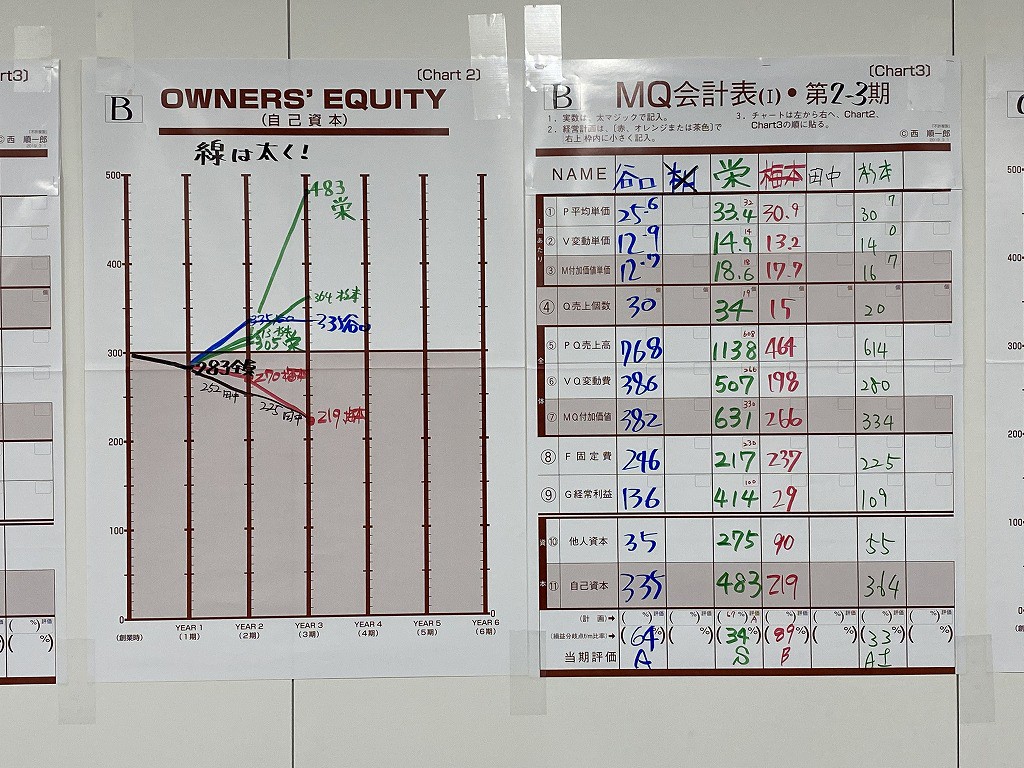 rt3)
順一郎
(Chart 2)
B
OWNERS' EQUITY
(自己資本)
© 西 順一郎
線は太く!
500
400
300
200
100
0
0
483
栄
364 杉本
335 谷口
305 栄
283 全員
270 梅本
252 田中
225 田中
219 梅本
(創業時)
YEAR 1 YEAR 2 YEAR 3 YEAR 4 YEAR 5 YEAR 6
(1期) (2期) (3期) (4期) (5期) (6期)
(Chart3)
B
MQ会計表(I)・第2-3期
1. 実数は、太マジックで記入。
2. 経営計画は、[赤、オレンジまたは茶色]で
右上枠内に小さく記入。
3. チャートは左から右へ、Chart2、
Chart3の順に貼る。
© 西 順一郎
NAME 谷口 栄 梅本 田中 杉本
1個あたり
① P平均単価 25.6 33.4 32 30.9 30.7
② V変動単価 12.9 14.9 14 13.2 14.0
③ M付加価値単価 12.7 18.6 18 17.7 16.7
④ Q売上個数 30 34 19 15 20
全体
⑤ PQ売上高 768 1138 608 464 614
⑥ VQ変動費 386 507 266 198 280
⑦ MQ付加価値 382 631 330 266 334
⑧ F固定費 246 217 230 237 225
⑨ G経常利益 136 414 100 29 109
資本
⑩ 他人資本 35 275 90 55
⑪ 自己資本 335 483 219 364
(計 画)→ ( %)評価 ( %)評価 (67%)評価 A ( %)評価 ( %)評価 ( %)評価 ( %)評価
(損益分岐点f/m比率)→ (64%) ( %) (34%) (89%) ( %) (33%) ( %)
当期評価 A S B A
500
400
300
200
100